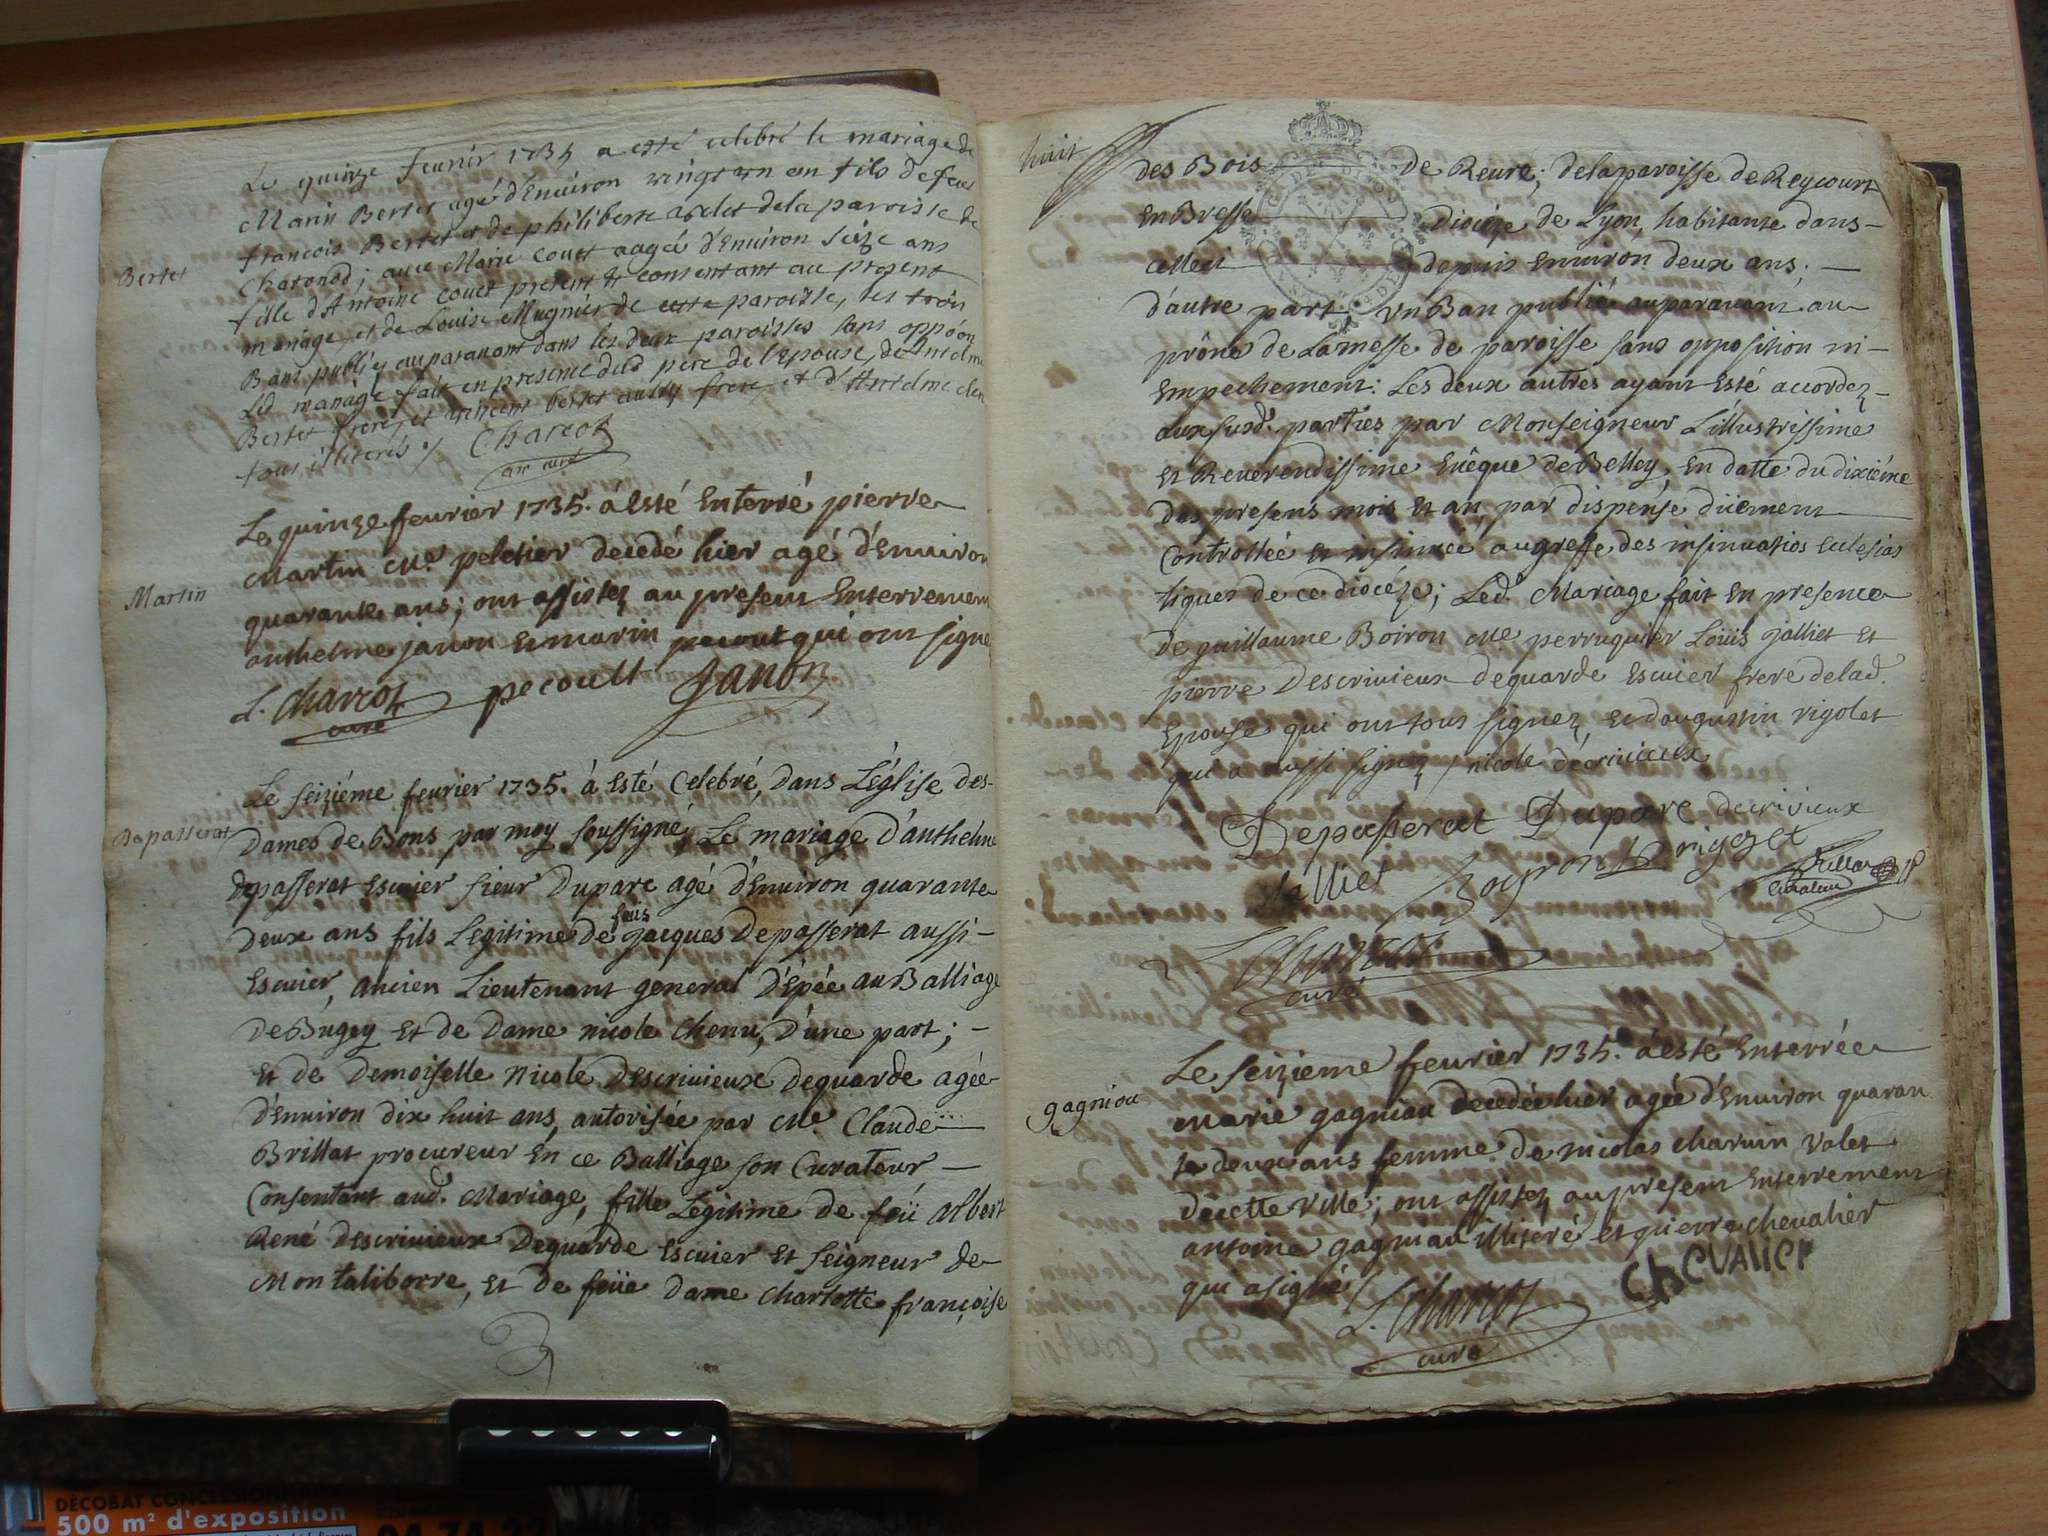 Le quinze feuvrir 1735 a esté celebré le mariage de
Marin Bertet agé d'Enuiron vingt un an fils de feu
françois Bertet et de philiberte de la paroisse de
Chatonod; auec Marie Couet aagée d'Enuiron seize ans
fille d'Antoine Couet present & consentant au present
Bertet
mariage, et de Louise Mugnier de cette paroisse, les trois
Bans publiéz auparauant dans les deux paroisses sans oppóon
Led mariage fait en presence dud pere de l'epouse, de
Bertet frere, et vincent bertet aussy frere et d'Antelme
tous illiterés ./. Charcot
curé
Le quinze feurier 1735. à esté Enterré pierre
Martin Me. peletier decedé hier agé d'Enuiron
Martin
quarante ans; ont assistez au present Enterrement
anthelme janon et marin pecout qui ont signé
L. Charcot pecoult Janon
curé
Le seiziéme feurier 1735. à esté Celebré, dans L'église des-
Depasserat
Dames de Bons par moy soussigné, Le mariage d'anthelme
depasserat escuier sieur Duparc agé d'Enuiron quarante
feu
deux ans fils Legitime de jacques Depasserat aussi-
escuier, ancien Lieutenant general D'épée au Balliage
De Bugey et de Dame nicole Chenu, D'une part; -
et de Demoiselle Nicole Descriuieux Dequarde agée
D'Enuiron dix huit ans, autorisée par Me. Claude
Brillat procureur en ce Balliage son Curateur -
Consentant aud. Mariage, fille Legitime de feü Albert
René Descriuieux Dequarde escuier et seigneur de
Montaliborre, et de feüe Dame Charlotte françoise
huit
des Bois de Reure; de la paroisse de Reycourt
en Bresse diocize de Lyon, habitante dans-
depuis enuiron deux ans. -
d'autre part; un Ban publié auparavant au
prône de La messe de paroisse sans opposition ni -
empechement: Les deux autres ayant esté accordez -
aux susd. parties par Monseigneur L'illustrissime
et Reuerendissime Euêque de Belley, en datte du dixiéme
des presens mois et an, par dispense düement
Controllée et insinuée au greffe des insinuatios Eclesias
tiques de ce diocéze; Led. Mariage fait en presence
De guillaume Boiron Me perruquier Loüis jalliet et
pierre Descriuieux dequarde escuier frere de lad.
Epouse qui ont tous signez, et d'augustin rigolet
qui a aussi signez / nicole décriuieux
Depasserat Duparc decriuieux
Jalliet Boyron
Brillat
Curateur
L. Charcot
curé
Le seizieme feurier 1735. à esté Enterrée
gagniou
marie gagniau decedée hier agée d'Enuiron quaran
te deux ans femme de nicolas charuin valet
de cette ville; ont assistez au present Enterrement
antoine gagniau illiteré et pierre chevalier
qui a signé / ChEVAliEr
L. Charcot
curé
DÉCOBAT CONCESSIONNAIRE
500 m² d'exposition